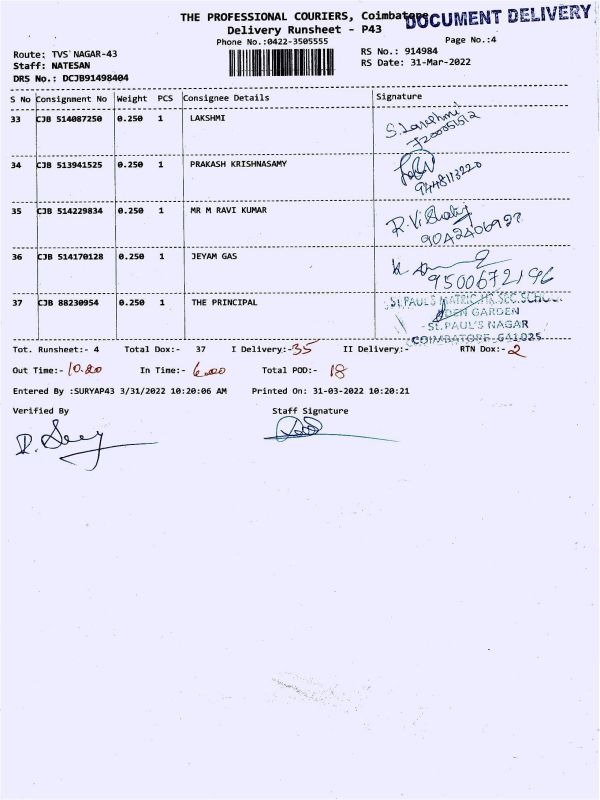 THE PROFESSIONAL COURIERS, Coimbatore
DOCUMENT DELIVERY
Delivery Runsheet - P43
Phone No.:0422-3505555
Page No.:4
Route: TVS NAGAR-43
RS No.: 914984
Staff: NATESAN
RS Date: 31-Mar-2022
DRS No.: DCJB91498404
S No Consignment No Weight PCS Consignee Details Signature
33 CJB 514087250 0.250 1 LAKSHMI
S. Lakshmi
34 CJB 513941525 0.250 1 PRAKASH KRISHNASAMY
9448113220
35 CJB 514229834 0.250 1 MR M RAVI KUMAR
36 CJB 514170128 0.250 1 JEYAM GAS
9500672196
37 CJB 88230954 0.250 1 THE PRINCIPAL
ST.PAUL'S MATRIC.HR.SEC.SCHOOL
EDEN GARDEN
ST.PAUL'S NAGAR
COIMBATORE-641025
Tot. Runsheet:- 4 Total Dox:- 37 I Delivery:-35 II Delivery:- RTN Dox:-2
Out Time:- 10.20 In Time:- 6.00 Total POD:- 18
Entered By :SURYAP43 3/31/2022 10:20:06 AM Printed On: 31-03-2022 10:20:21
Verified By Staff Signature